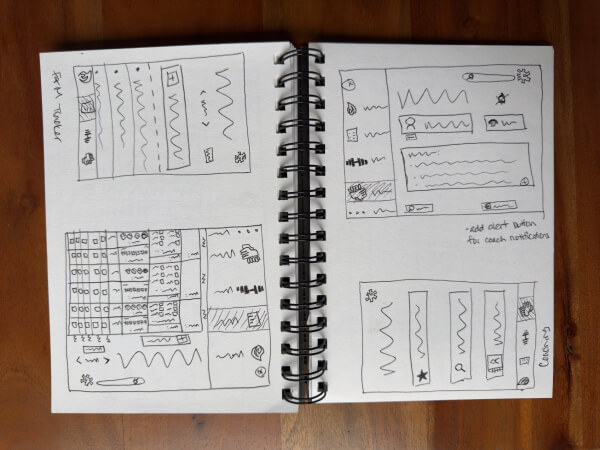 Tracker
-add alert button
for coach notifications
Coaching